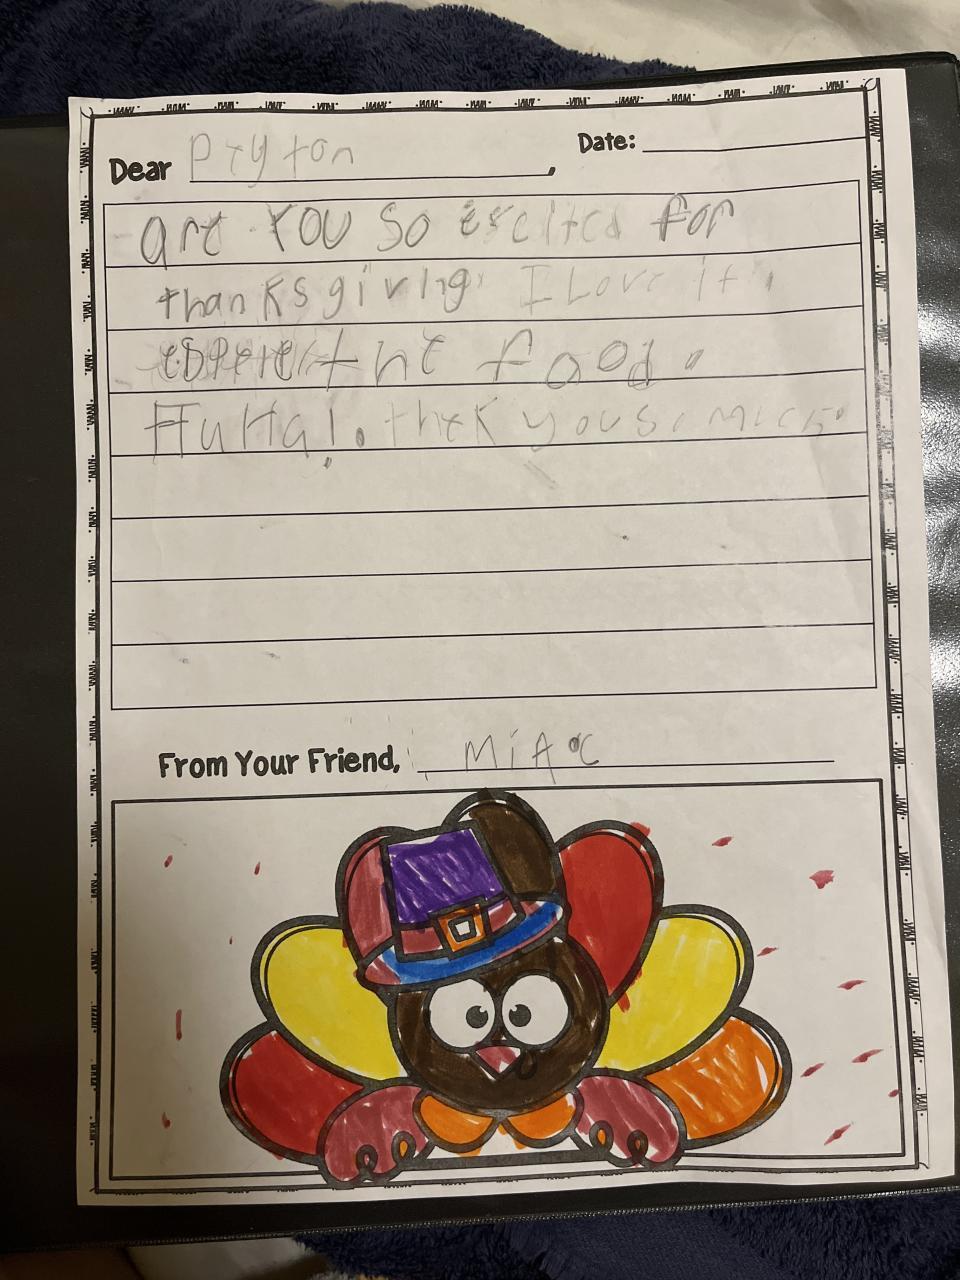 Dear Peyton, Date:
are YOU So excited for
thanksgiving I Love it
the food.
HaHa!. thek you so much
From Your Friend, MiA C